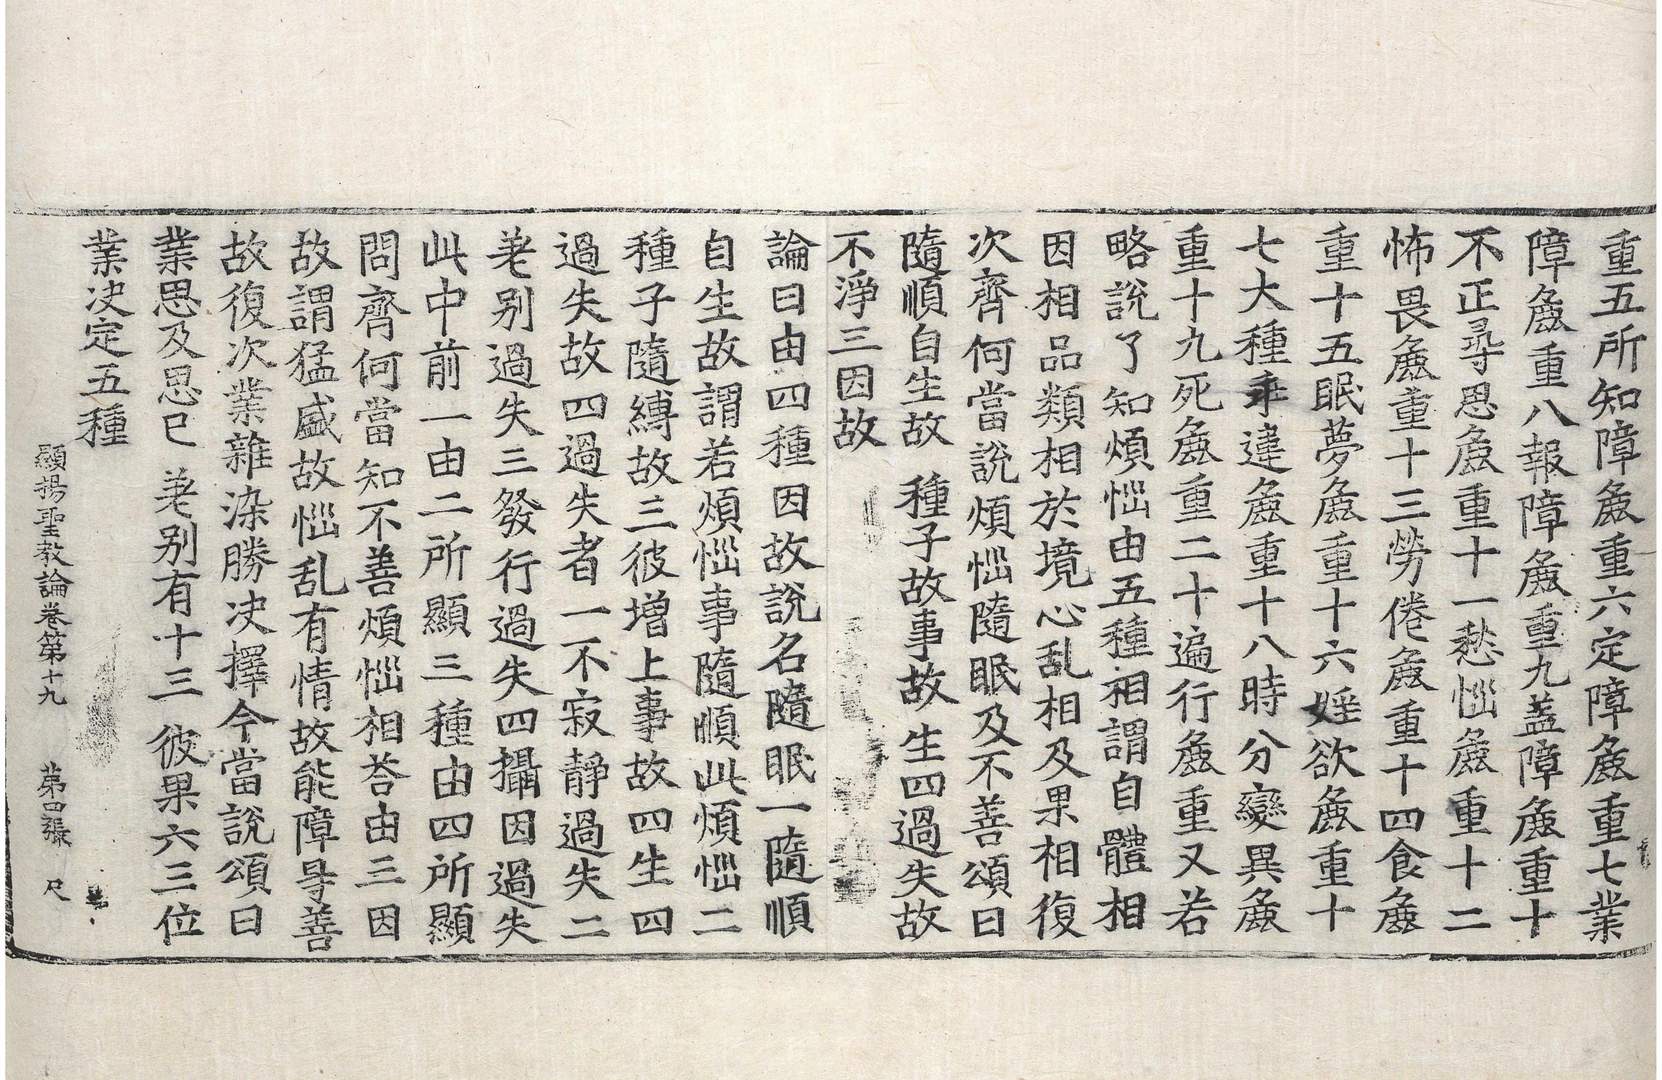 重五所知障麁重六定障麁重七業
障麁重八報障麁重九盖障麁重十
不正尋思麁重十一愁惱麁重十二
怖畏麁重十三勞倦麁重十四食麁
重十五眠夢麁重十六婬欲麁重十
七大種乖違麁重十八時分變異麁
重十九死麁重二十遍行麁重又若
略說了知煩惱由五種相謂自體相
因相品類相於境心乱相及果相復
次齊何當說煩惱隨眠及不善頌曰
隨順自生故 種子故事故 生四過失故
不淨三因故
論曰由四種因故說名隨眠一隨順
自生故謂若煩惱事隨順此煩惱二
種子隨縛故三彼增上事故四生四
過失故四過失者一不寂靜過失二
差别過失三發行過失四攝因過失
此中前一由二所顯三種由四所顯
問齊何當知不善煩惱相荅由三因
故謂猛盛故惱乱有情故能障㝵善
故復次業雜染勝决擇今當說頌曰
業思及思已 差别有十三 彼果六三位
業决定五種
顯揚聖教論卷第十九 第四張 尺